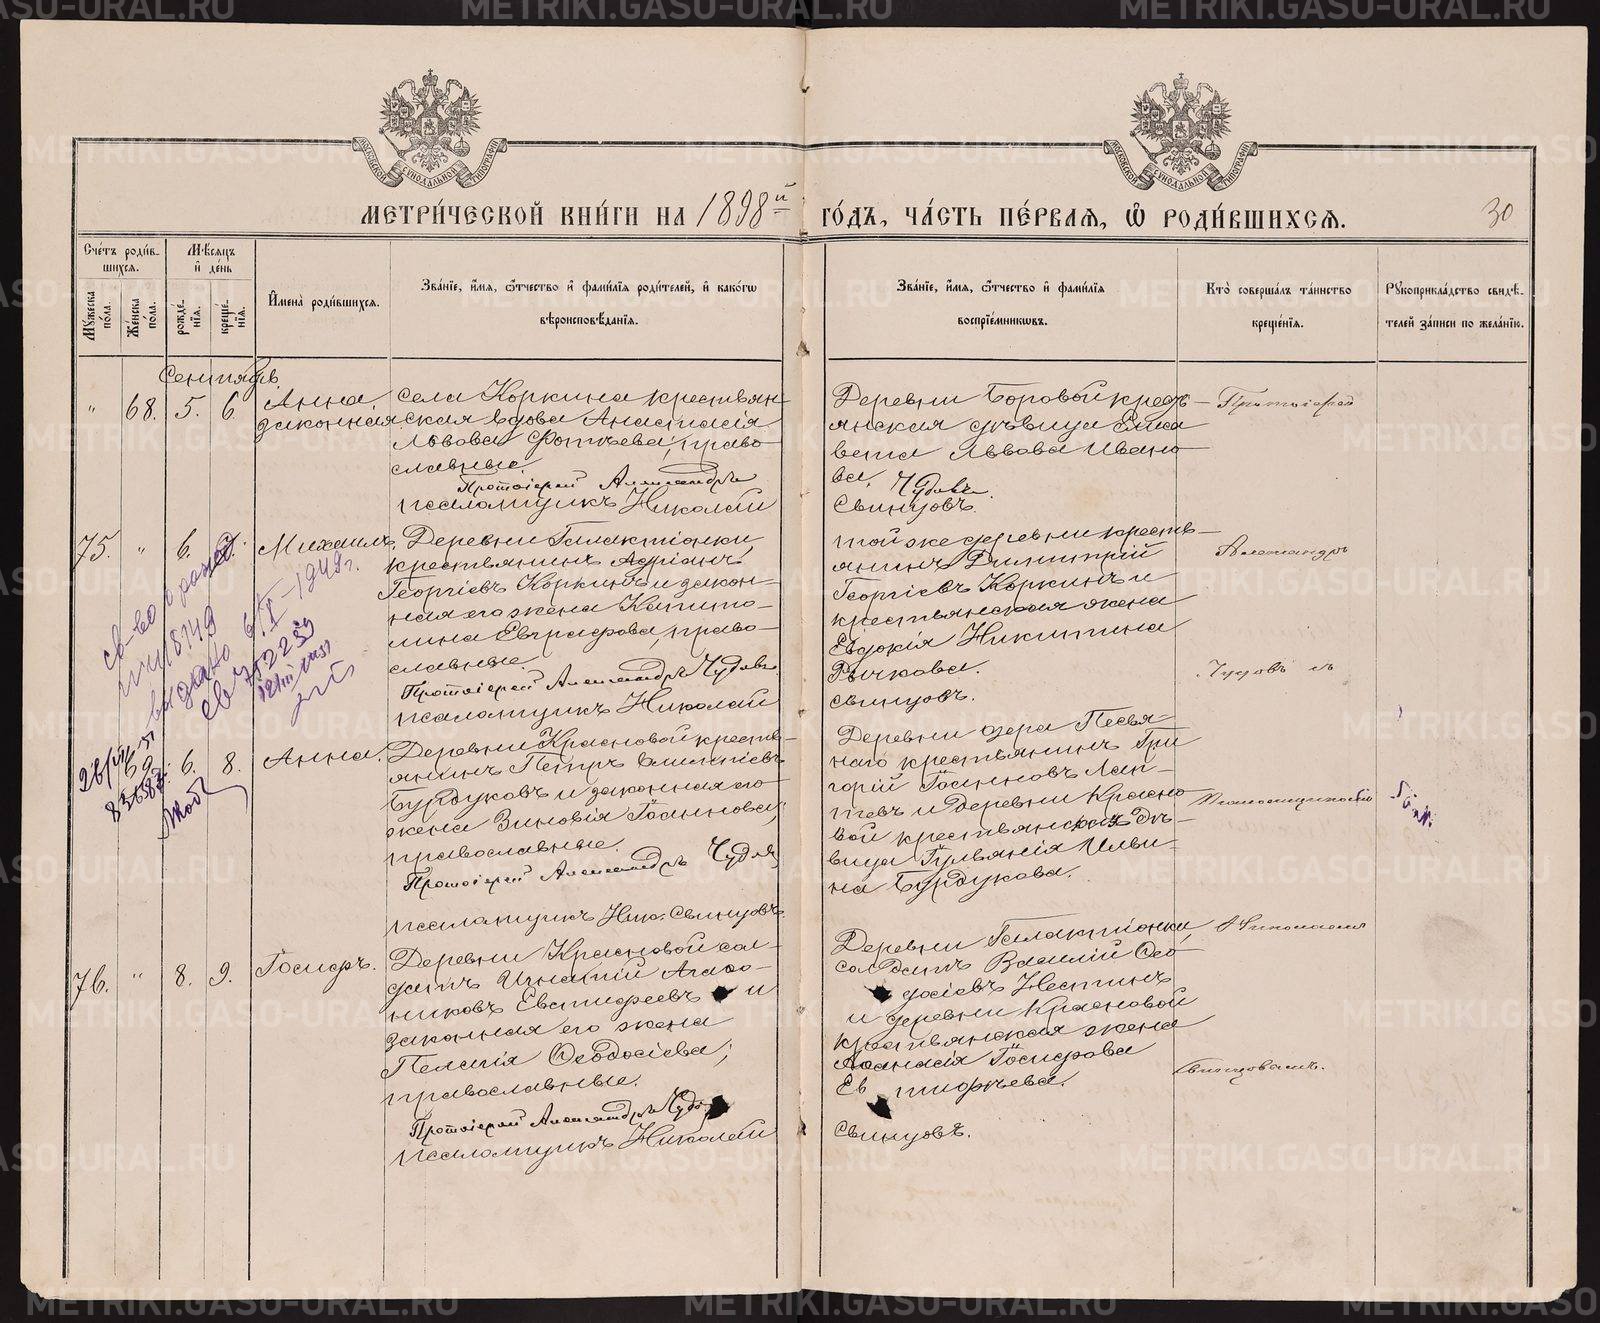 МЕТРИЧЕСКОЙ КНИГИ НА 1898й ГОДЪ, ЧАСТЬ ПЕРВАЯ, Ѡ РОДИВШИХСЯ.
30
Счетъ родившихся.
Мужеска пола.
Женска пола.
Мѣсяцъ и день
рожденія.
крещенія.
Имена родившихся.
Званіе, имя, ѿчество и фамилія родителей, и какогѡ
вѣроисповѣданія.
Званіе, имя, ѿчество и фамилія
воспріемникѡвъ.
Кто совершалъ таинство
крещенія.
Рукоприкладство свидѣ-
телей записи по желанію.
Сентябрь.
" 68. 5. 6.
Анна
законная
села Коркина крестьян-
ская вдова Анастасія
Львова Фотѣева, право-
славные.
Протоіерей Александръ
псаломщикъ Николай
Деревни Боровой кресть-
янская дѣвица Елиса
вета Львова Ивано-
ва.
Чудовъ.
Свинцовъ.
Протоіерей
75. " 6.
Михаилъ.
Деревни Галактіонки
крестьянинъ Адріанъ
Георгіевъ Коркинъ и закон-
ная его жена Капито-
лина Евграфова, право-
славные.
Протоіерей Александръ Чудовъ
псаломщикъ Николай
той же деревни кресть-
янинъ Димитрій
Георгіевъ Коркинъ и
крестьянская жена
Евдокія Никитина
Рычкова.
Свинцовъ.
Александръ
Чудовъ съ
св-во о рожд.
выдано 6/X-1949г.
69. 6. 8.
Анна.
Деревни Красновой кресть-
янинъ Петръ
Бурдуковъ и законная его
жена Зиновія Іоаннова;
православные.
Протоіерей Александръ Чудовъ
псаломщикъ Ник. Свинцовъ.
Деревни озера Песья-
наго крестьянинъ Гри
горій Іоанновъ Лап-
тевъ и деревни Красно
вой крестьянская дѣ-
вица Іуліанія Ильи-
на Бурдукова.
Псаломщикомъ
76. " 8. 9.
Іосифъ.
Деревни Красновой сол-
датъ Игнатій Агаѳо-
никовъ Евстифеевъ и
законная его жена
Пелагія Ѳеодосіева;
православные.
Протоіерей Александръ Чудо
псаломщикъ Николай
Деревни Галактіонки
солдатъ Василій Ѳео-
досіевъ Нестинъ
и деревни Красновой
крестьянская жена
Аѳанасія Іосифова
Ев стифѣева.
Свинцовъ.
Николаемъ
Свинцовымъ.
METRIKI.GASO-URAL.RU